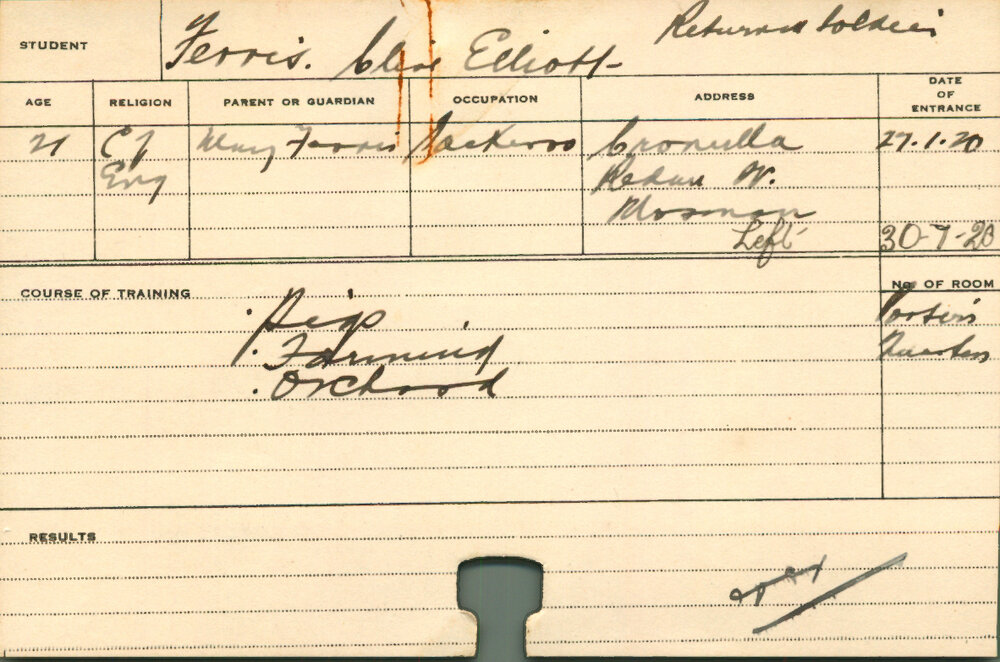 STUDENT Ferris. Clive Elliott Returned Soldier
AGE RELIGION PARENT OR GUARDIAN OCCUPATION ADDRESS DATE OF ENTRANCE
21 C of Mary Ferris Jackeroo Cronulla 27.1.20
Eng W.
Mosman
Left 30-7-20
COURSE OF TRAINING No. OF ROOM
Pigs Porter's
Farming Quarters
Orchard
RESULTS